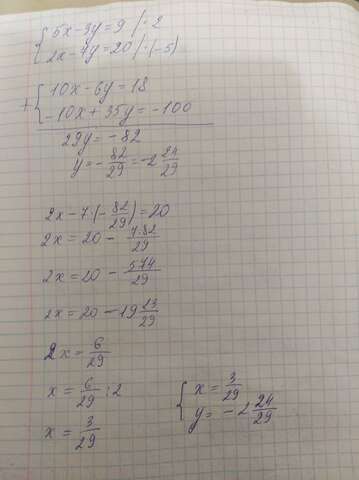 { 5x-3y=9 |·2
{ 2x-7y=20 |·(-5)
+{ 10x-6y=18
{ -10x+35y=-100
29y=-82
y=-82/29=-2 24/29
2x-7·(-82/29)=20
2x=20-7·82/29
2x=20-574/29
2x=20-19 23/29
2x=6/29
x=6/29:2
x=3/29
{ x=3/29
{ y=-2 24/29